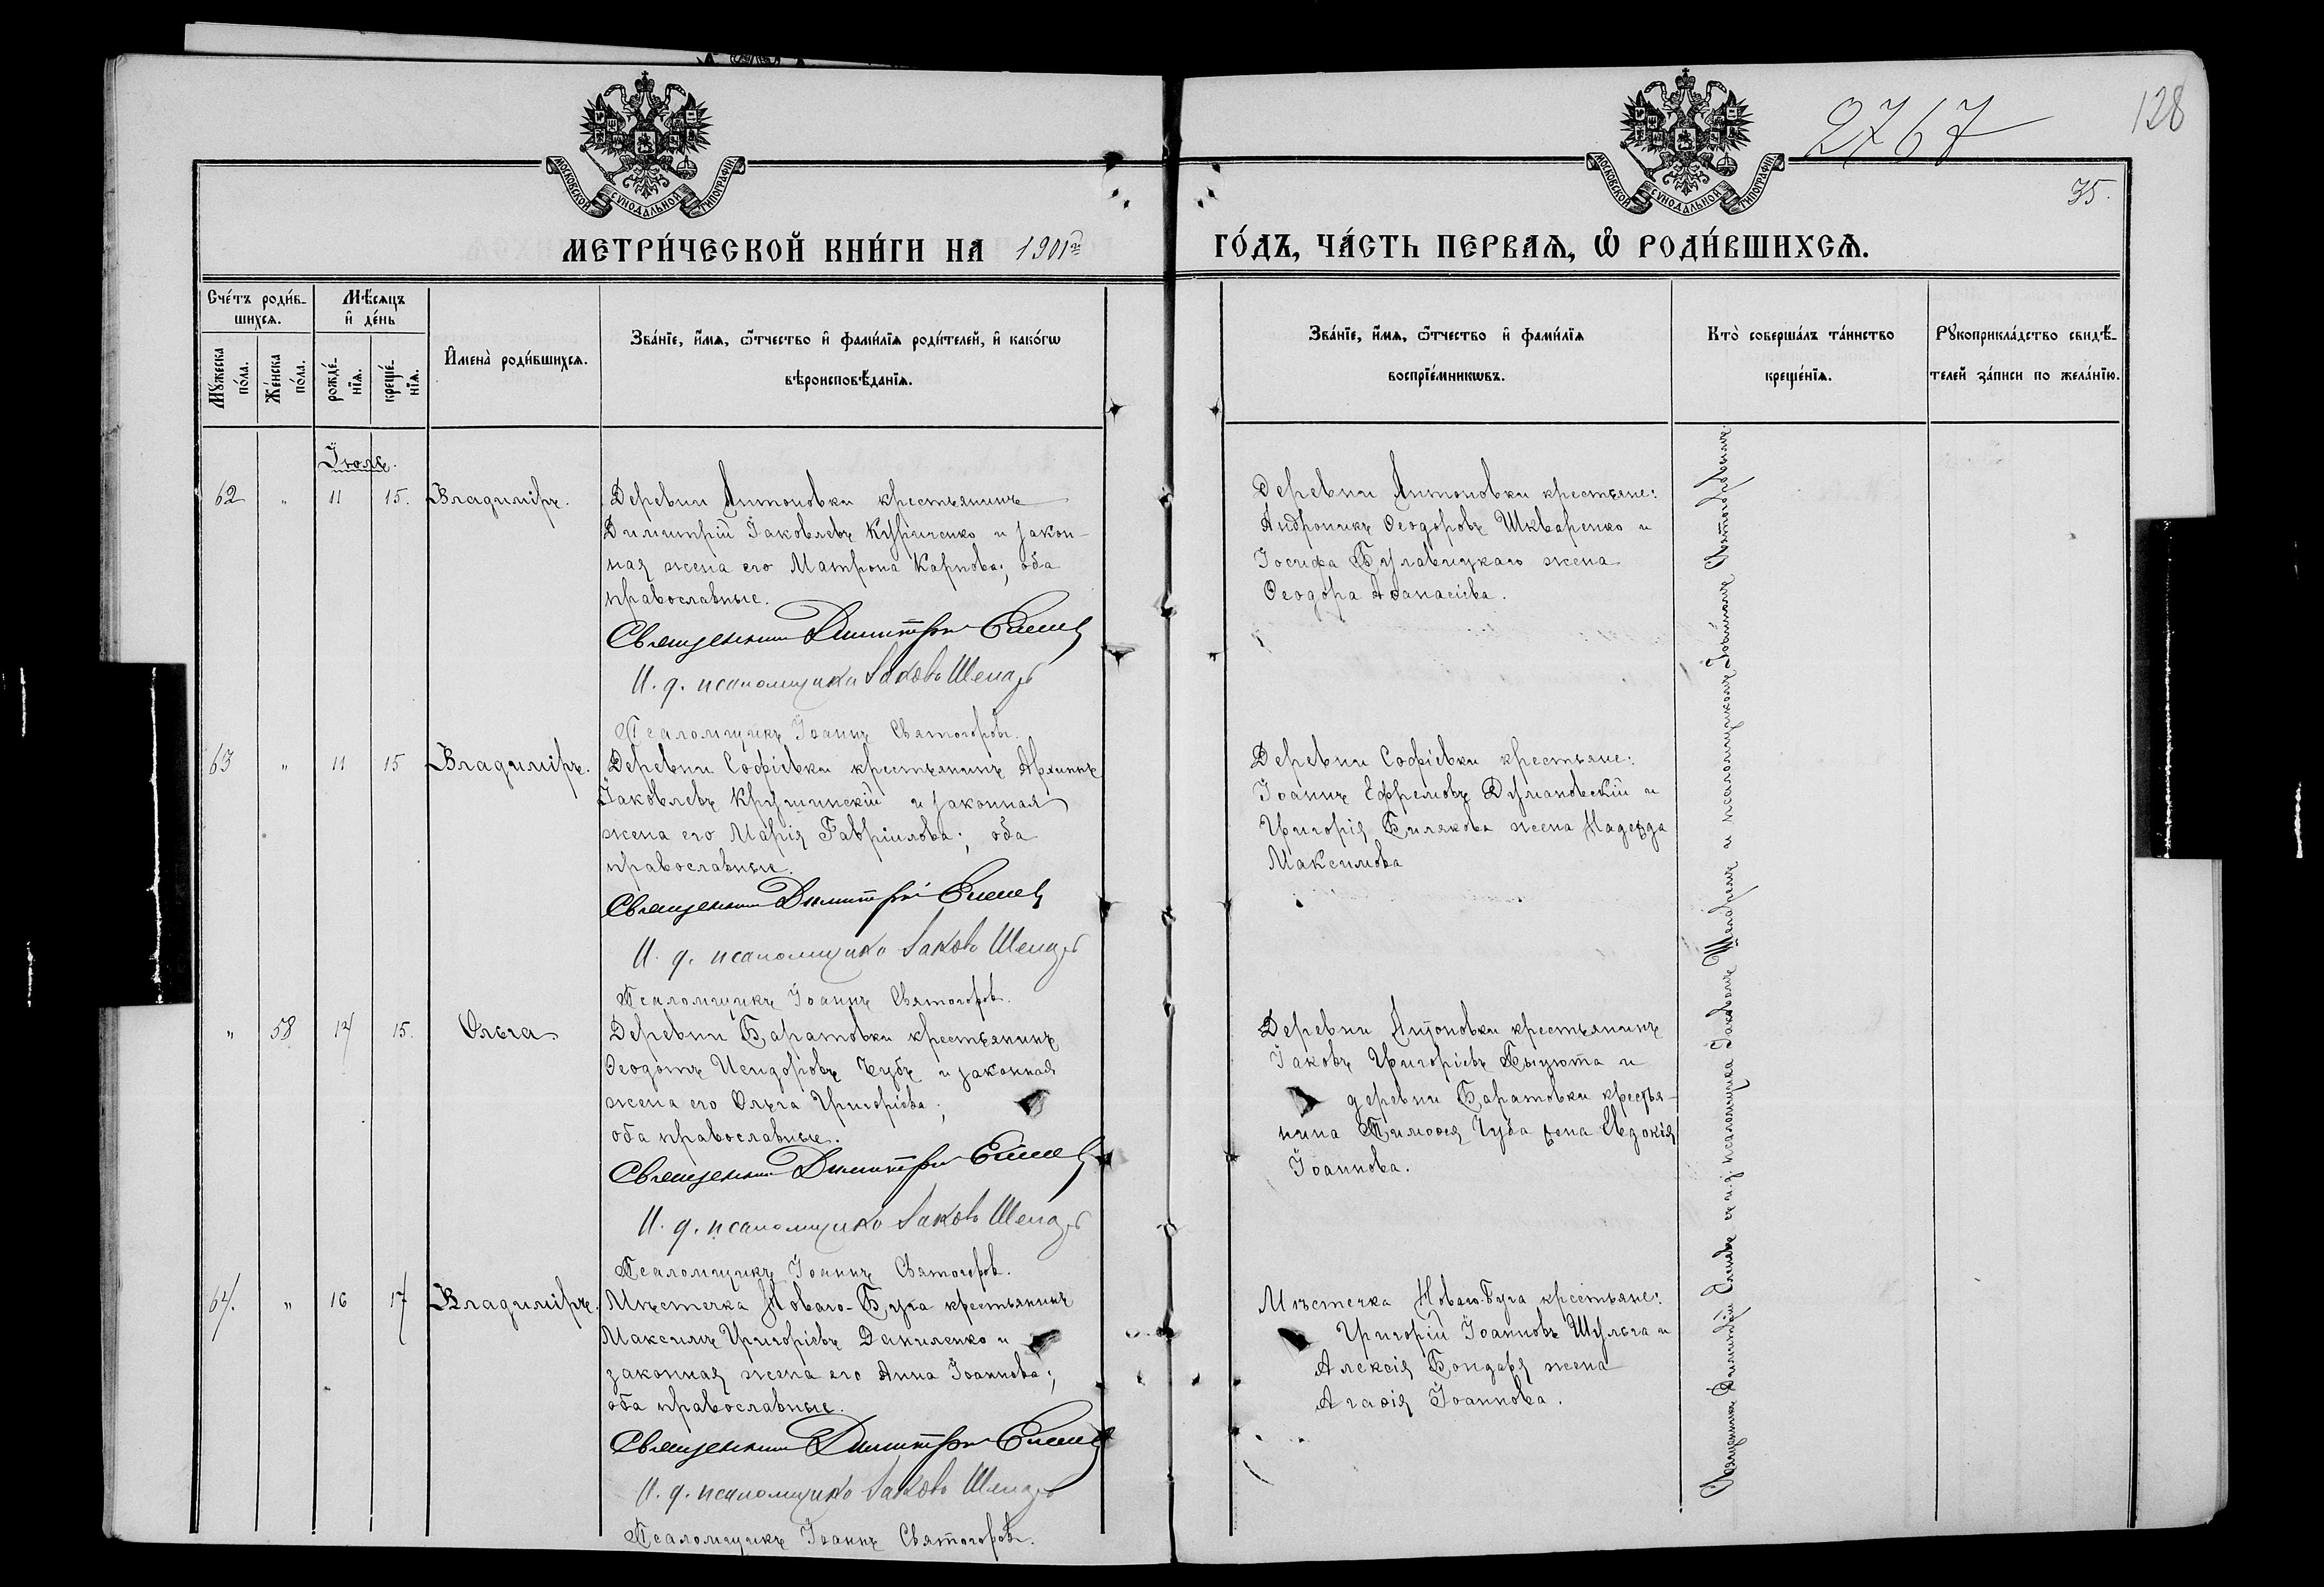 МОСКОВСКОЙ СѴНОДАЛЬНОЙ ТИПОГРАФІИ
МОСКОВСКОЙ СѴНОДАЛЬНОЙ ТИПОГРАФІИ
2767
128
35.
МЕТРИ́ЧЕСКОЙ КНИ́ГИ НА 1901й
ГО́ДЪ, ЧА́СТЬ ПЕРВАѦ, Ѡ РОДИ́ВШИХСѦ.
Сче́тъ роди́в-
шихсѧ.
Мꙋ́жеска по́ла.
Же́нска по́ла.
Мѣ́сѧцъ
и҆ де́нь
рожде́-
нїѧ.
креще́-
нїѧ.
И҆мена̀ роди́вшихсѧ.
Зва́нїе, и҆́мѧ, ѻ҆́тчество и҆ фами́лїѧ роди́телей, и҆ како́гѡ
вѣроисповѣ́данїѧ.
Зва́нїе, и҆́мѧ, ѻ҆́тчество и҆ фами́лїѧ
воспрїе́мникѡвъ.
Кто̀ соверша́лъ та́инство
креще́нїѧ.
Рꙋкоприкла́дство свидѣ́-
телей за́писи по жела́нїю.
Іюль.
62 " 11 15. Владиміръ.
Деревни Антоновки крестьянинъ
Димитрій Іаковлевъ Куриченко и закон-
ная жена его Матрона Карпова; оба
православные.
Священник Димитрій
И. д. псаломщика Іаковъ
Псаломщикъ Іоаннъ Святогоровъ.
Деревни Антоновки крестьяне:
Андроникъ Ѳеодоровъ Шкваренко и
Іосифа Булавицкаго жена
Ѳеодора Аѳанасіева.
63 " 11 15 Владиміръ.
Деревни Софіевки крестьянинъ Архипъ
Іаковлевъ Крушинскій и законная
жена его Марія Гавріилова; оба
православные.
Священник Димитрій
И. д. псаломщика Іаковъ
Псаломщикъ Іоаннъ Святогоровъ.
Деревни Софіевки крестьяне:
Іоаннъ Ефремовъ Думановскій и
Григорія Билякова жена Надежда
Максимова
" 58 14 15. Ольга
Деревни Баратовки крестьянинъ
Ѳеодотъ Исидоровъ Чубъ и законная
жена его Ольга Григоріева;
оба православные.
Священник Димитрій
И. д. псаломщика Іаковъ
Псаломщикъ Іоаннъ Святогоровъ.
Деревни Антоновки крестьянинъ
Іаковъ Григоріевъ и
деревни Баратовки крестья-
нина Тимоѳея Чуба жена Евдокія
Іоаннова.
64. " 16 17 Владиміръ.
Мѣстечка Новаго-Буга крестьянинъ
Максимъ Григоріевъ Даниленко и
законная жена его Анна Іоаннова;
оба православные.
Священник Димитрій
И. д. псаломщика Іаковъ
Псаломщикъ Іоаннъ Святогоровъ.
Мѣстечка Новаго-Буга крестьяне:
Григорій Іоанновъ Шульга и
Алексія Бондаря жена
Агаѳія Іоаннова.
Священникъ Димитрій съ и. д. псаломщика Іаковомъ и псаломщикомъ Іоанномъ